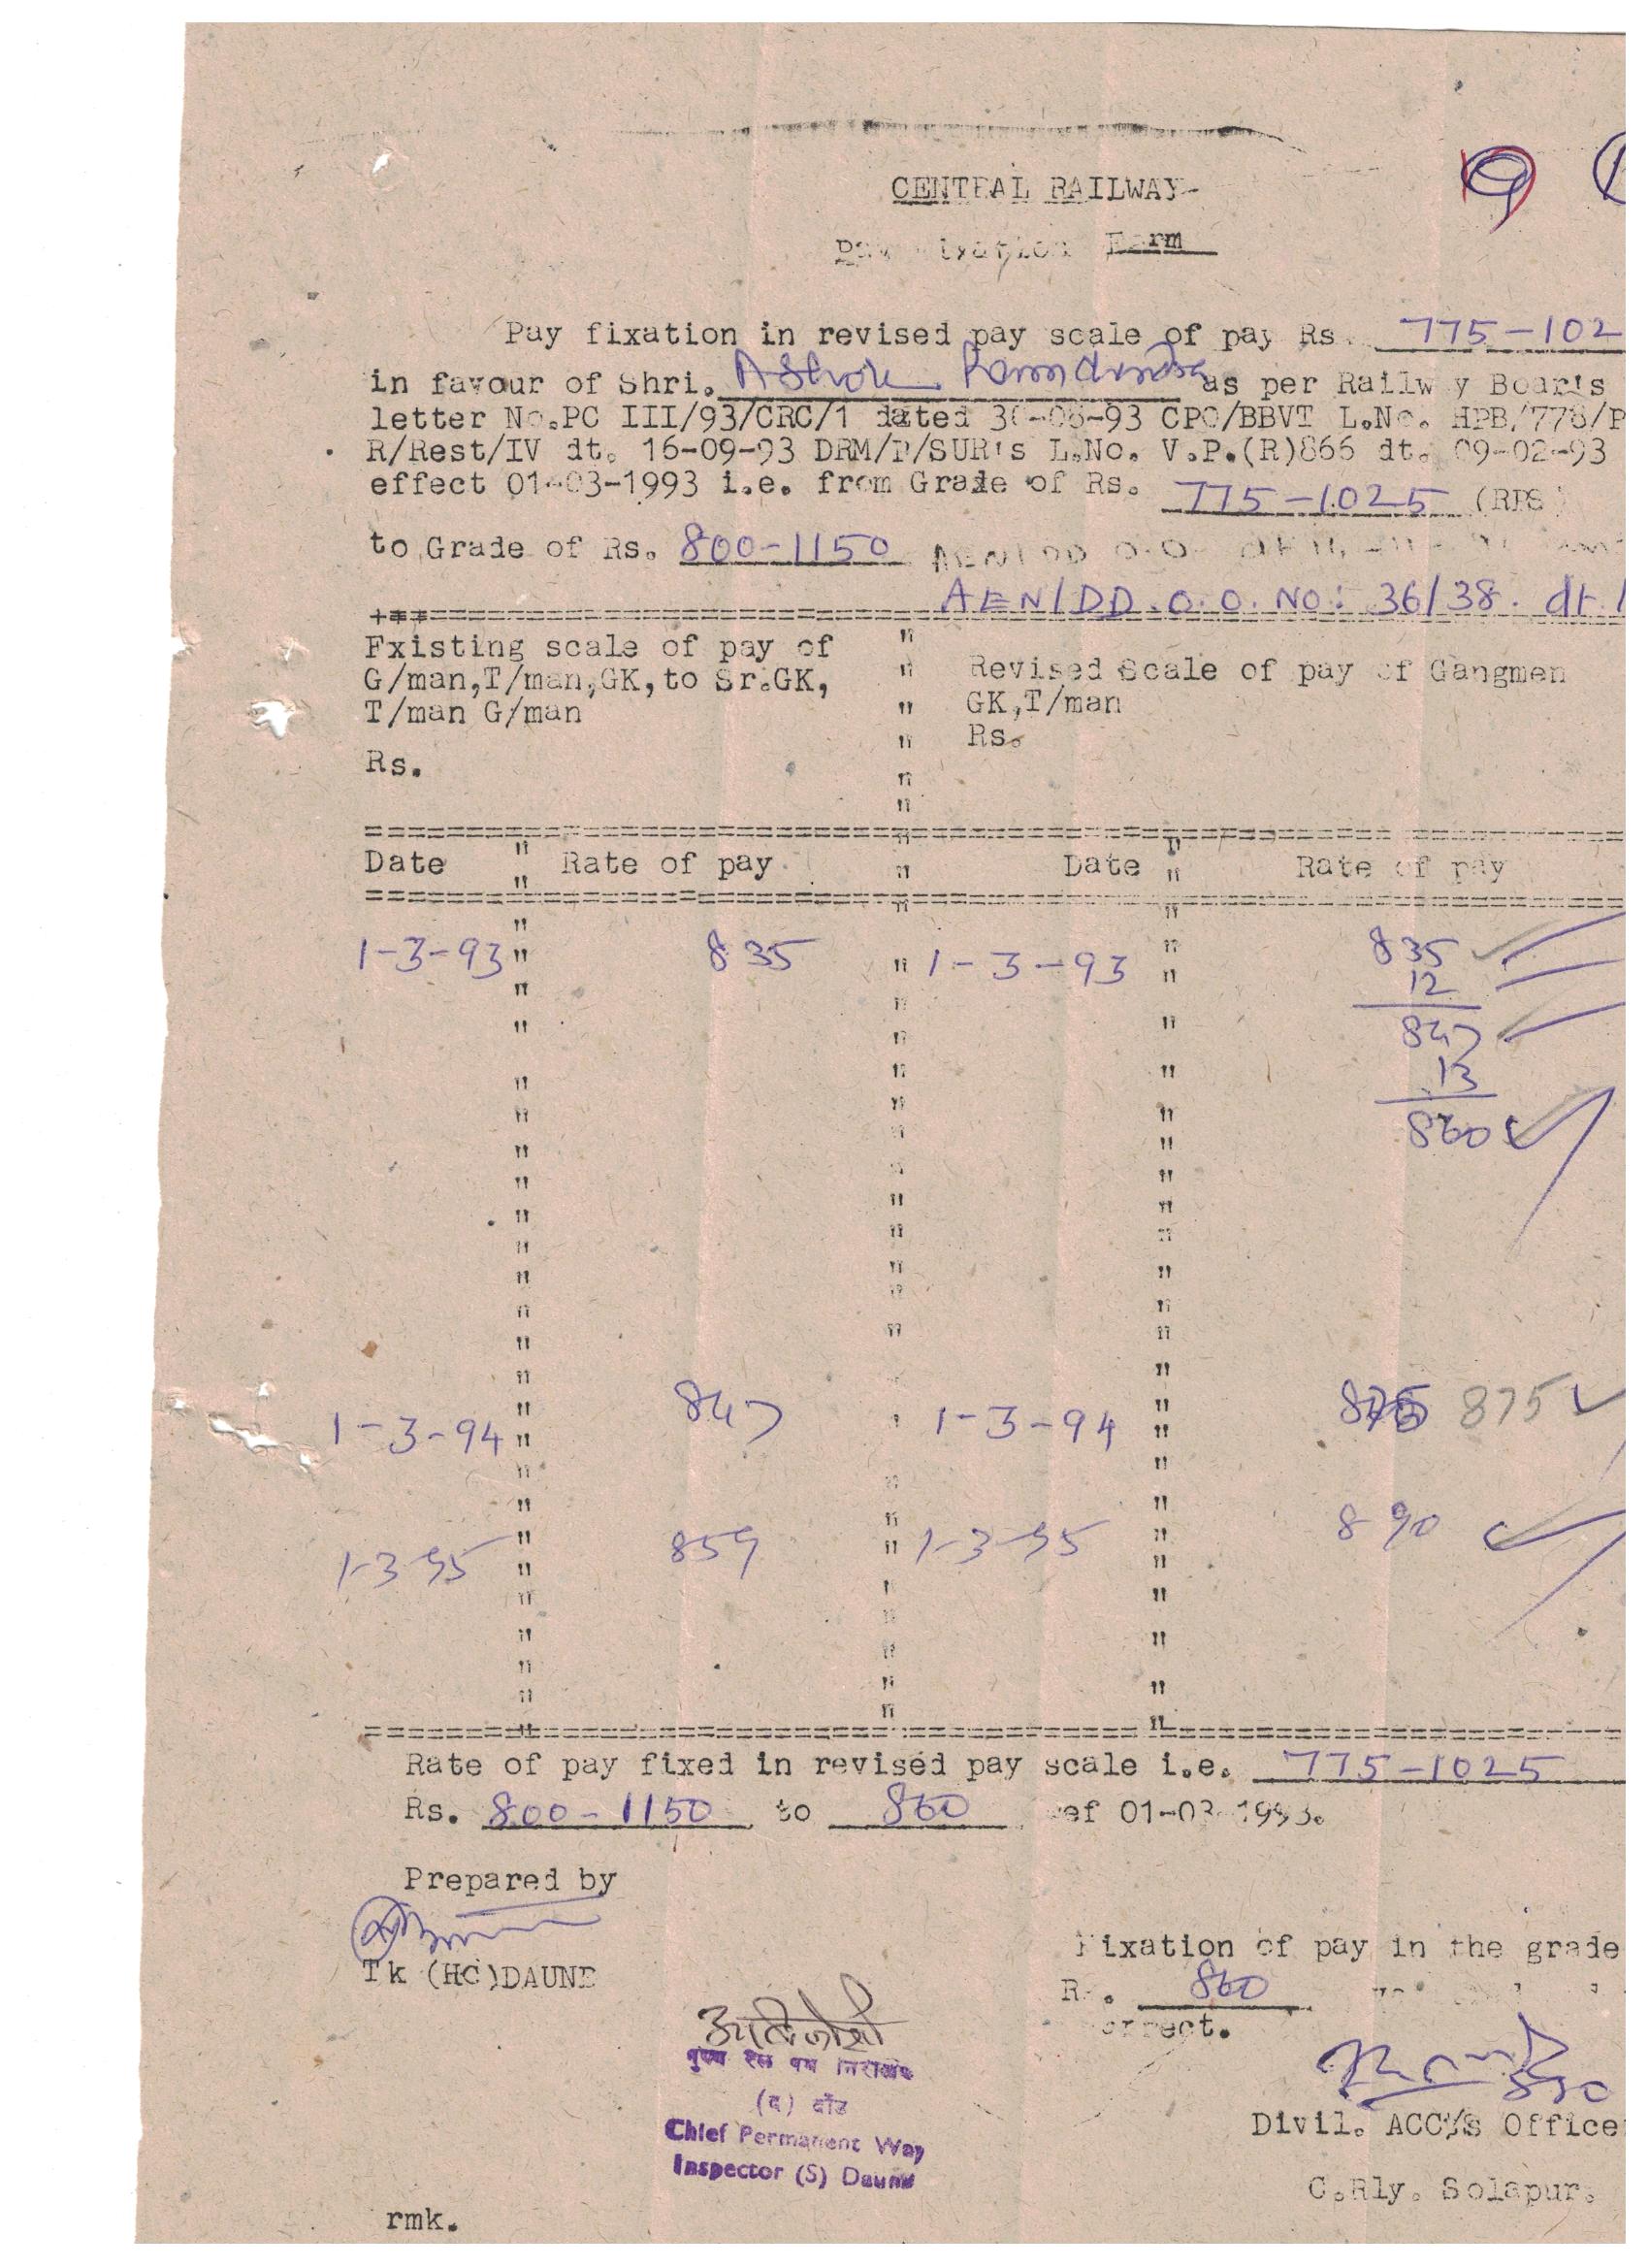 CENTRAL RAILWAY
Pay Fixation Form
Pay fixation in revised pay scale of pay Rs. 775-102
in favour of Shri. Ashok as per Railway Board's
letter No.PC III/93/CRC/1 dated 30-06-93 CPO/BBVT L.No. HPB/778/P
R/Rest/IV dt. 16-09-93 DRM/P/SUR's L.No. V.P.(R)866 dt. 09-02-93
effect 01-03-1993 i.e. from Grade of Rs. 775-1025 (RPS)
to Grade of Rs. 800-1150
AEN/DD.O.O.NO: 36/38. dt.
Existing scale of pay of
G/man,T/man,GK,to Sr.GK,
T/man G/man
Rs.
Revised Scale of pay of Gangmen
GK,T/man
Rs.
Date Rate of pay Date Rate of pay
1-3-93 835 1-3-93 835
12
847
13
860
1-3-94 847 1-3-94 875
1-3-95 859 1-3-95 890
Rate of pay fixed in revised pay scale i.e. 775-1025
Rs. 800-1150 to 860 wef 01-03-1993.
Prepared by
Tk (HC)DAUND
Fixation of pay in the grade
Rs. 860
correct.
मुख्य रेल पथ निरीक्षक
(द) दौंड
Chief Permanent Way
Inspector (S) Daund
Divil. ACC's Office
C.Rly. Solapur.
rmk.